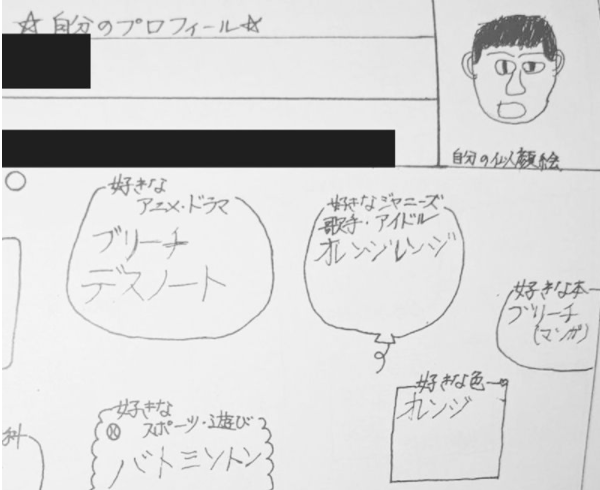 ☆自分のプロフィール☆
自分の似顔絵
好きな
アニメ・ドラマ
ブリーチ
デスノート
好きなジャニーズ
歌手・アイドル
オレンジレンジ
好きな本
ブリーチ
(マンガ)
好きな色
オレンジ
好きな
スポーツ・遊び
バトミントン
科